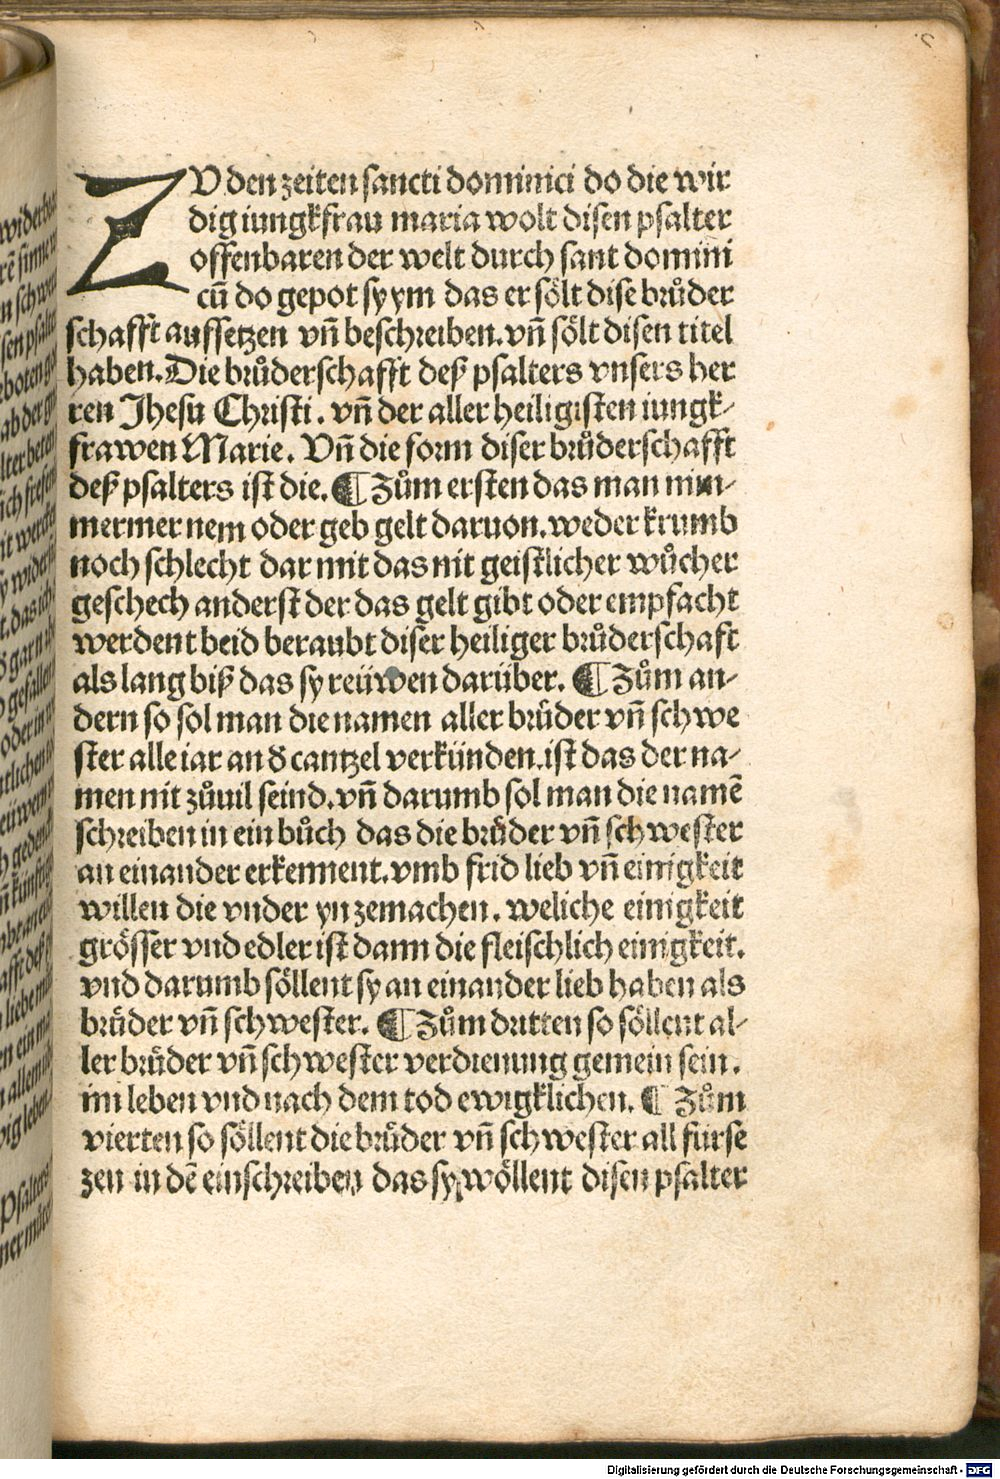 ZV den zeiten sancti dominici do die wir
dig iungkfrau maria wolt disen psalter
offenbaren der welt durch sant domini
cū do gepot sy ym das er sölt dise brůder
schafft auffsetzen vn̄ beschreiben. vn̄ sölt disen titel
haben. Die brůderschafft deß psalters vnsers her
ren Jhesu Christi. vn̄ der aller heiligisten iungk-
frawen Marie. Vn̄ die form diser brůderschafft
deß psalters ist die. ¶ Zům ersten das man nim-
mermer nem oder geb gelt daruon. weder krumb
noch schlecht dar mit das nit geistlicher wůcher
geschech anderst der das gelt gibt oder empfacht
werdent beid beraubt diser heiliger brůderschaft
als lang biß das sy reüwen darüber. ¶ Zům an-
dern so sol man die namen aller brüder vn̄ schwe
ster alle iar an d̕ cantzel verkünden. ist das der na-
men nit zůuil seind. vn̄ darumb sol man die namē
schreiben in ein bůch das die brüder vn̄ schwester
an einander erkennent. vmb frid lieb vn̄ einigkeit
willen die vnder yn zemachen. weliche einigkeit
grösser vnd edler ist dann die fleischlich einigkeit.
vnd darumb söllent sy an einander lieb haben als
brüder vn̄ schwester. ¶ Zům dritten so söllent al-
ler brüder vn̄ schwester verdienung gemein sein.
im leben vnd nach dem tod ewigklichen. ¶ Zům
vierten so söllent die brüder vn̄ schwester all fürse
zen in dē einschreiben das sy wöllent disen psalter
Digitalisierung gefördert durch die Deutsche Forschungsgemeinschaft - DFG